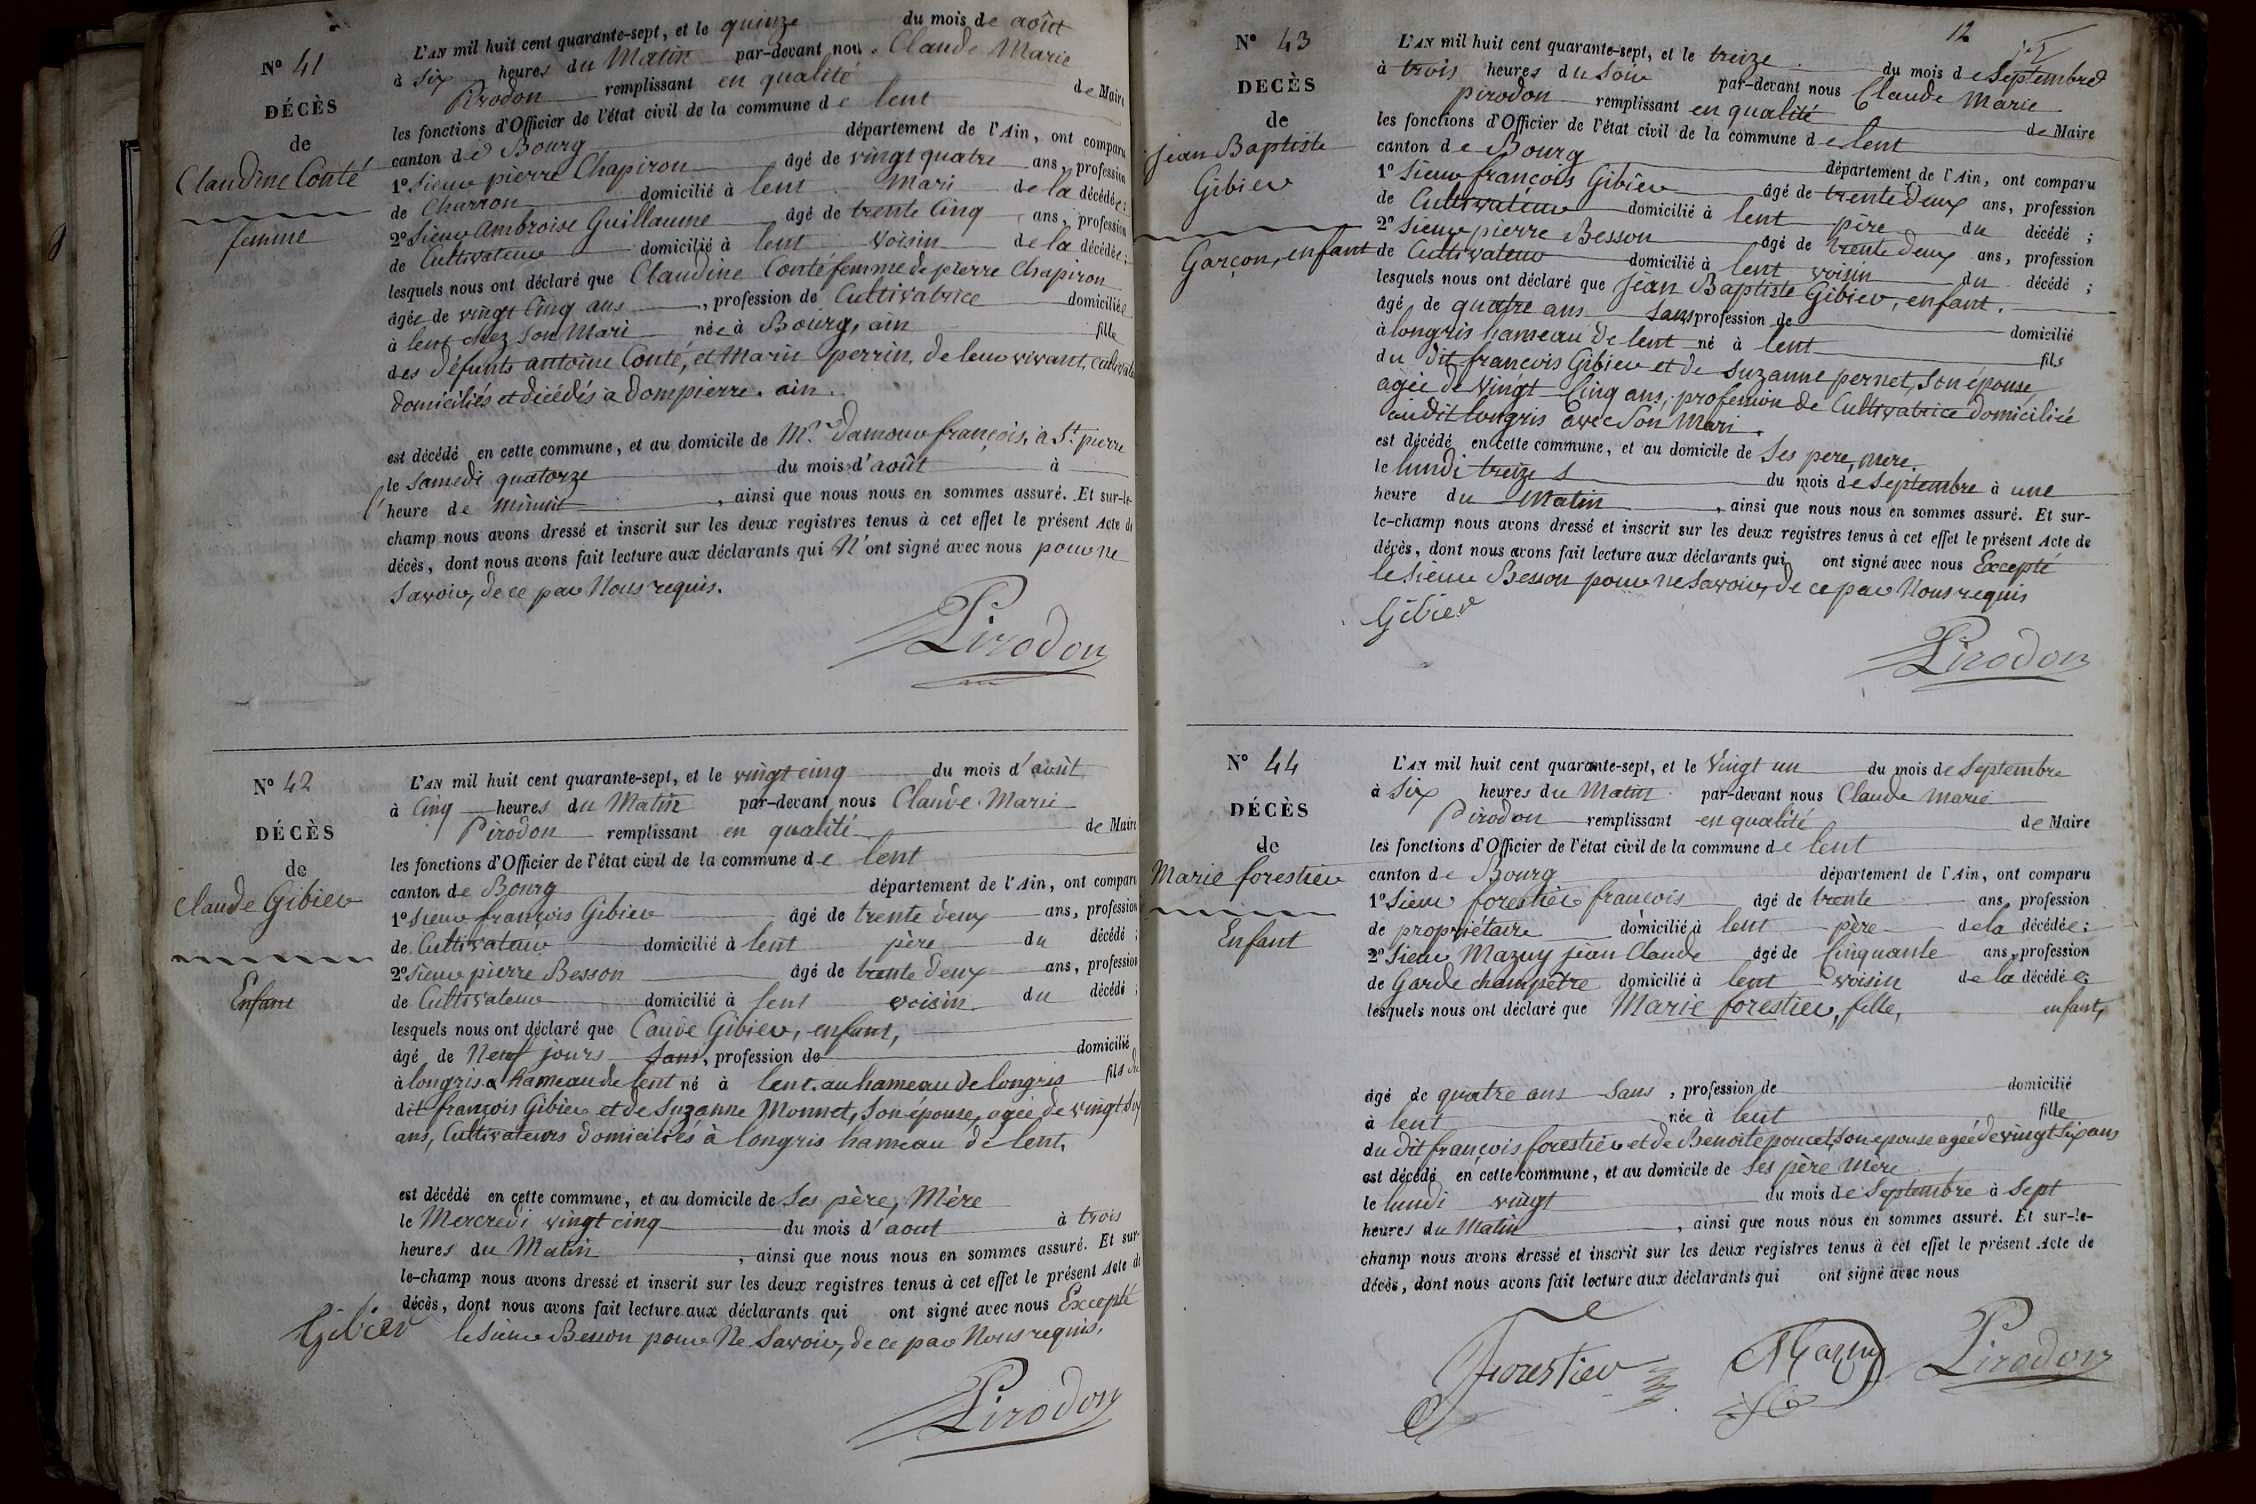 N° 41
DÉCÈS
de
Claudine Conté
femme
L'AN mil huit cent quarante-sept, et le quinze du mois de août
à six heures du Matin par-devant nou Claude Marie
Pirodon remplissant en qualité de Maire
les fonctions d'Officier de l'état civil de la commune de lent
canton de Bourg département de l'Ain, ont comparu
1° Sieur pierre Chapiron âgé de vingt quatre ans, profession
de Charron domicilié à lent Mari de la décédée;
2° Sieur Ambroise Guillaume âgé de trente Cinq ans, profession
de Cultivateur domicilié à lent voisin de la décédée;
lesquels nous ont déclaré que Claudine Conté femme de pierre Chapiron
âgée de vingt Cinq ans, profession de Cultivatrice domiciliée
à lent chez son Mari née à Bourg, ain fille
des défunts antoine Conté, et Marie perrin, de leur vivant,
domiciliés et décédés à Dompierre. ain.
est décédé en cette commune, et au domicile de Mr. Damour françois, à St. pierre
le samedi quatorze du mois d'août à
heure de minuit, ainsi que nous nous en sommes assuré. Et sur-le-
champ nous avons dressé et inscrit sur les deux registres tenus à cet effet le présent Acte de
décès, dont nous avons fait lecture aux déclarants qui N'ont signé avec nous pour ne
savoir, de ce par Nous requis.
Pirodon
N° 42
DÉCÈS
de
Claude Gibier
Enfant
L'AN mil huit cent quarante-sept, et le vingt cinq du mois d'août
à Cinq heures du Matin par-devant nous Claude Marie
Pirodon remplissant en qualité de Maire
les fonctions d'Officier de l'état civil de la commune de lent
canton de Bourg département de l'Ain, ont comparu
1° Sieur françois Gibier âgé de trente deux ans, profession
de Cultivateur domicilié à lent père du décédé;
2° Sieur pierre Besson âgé de trente deux ans, profession
de Cultivateur domicilié à lent voisin du décédé;
lesquels nous ont déclaré que Caude Gibier, enfant,
âgé de Neuf jours sans, profession de domicilié
à longris hameau de lent né à lent. au hameau de longris fils du
dit françois Gibier et de Suzanne Monnet, son épouse, agée de vingt six
ans, Cultivateurs domiciliés à longris hameau de lent.
est décédé en cette commune, et au domicile de Ses père, Mère
le Mercredi vingt cinq du mois d'aout à trois
heures du Matin, ainsi que nous nous en sommes assuré. Et sur-
le-champ nous avons dressé et inscrit sur les deux registres tenus à cet effet le présent Acte de
décès, dont nous avons fait lecture aux déclarants qui ont signé avec nous Excepté
Gibier le Sieur Besson pour Ne Savoir, de ce par Nous requis.
Pirodon
12
N° 43
DECÈS
de
Jean Baptiste
Gibier
Garçon, enfant
L'AN mil huit cent quarante-sept, et le treize du mois de Septembre
à trois heures du Soir par-devant nous Claude Marie
pirodon remplissant en qualité de Maire
les fonctions d'Officier de l'état civil de la commune de lent
canton de Bourg département de l'Ain, ont comparu
1° Sieur françois Gibier âgé de trente Deux ans, profession
de Cultivateur domicilié à lent père du décédé;
2° Sieur pierre Besson âgé de trente deux ans, profession
de Cultivateur domicilié à lent voisin du décédé;
lesquels nous ont déclaré que Jean Baptiste Gibier, enfant.
âgé de quatre ans sans profession de domicilié
à longris hameau de lent né à lent fils
du dit françois Gibier et de Suzanne pernet, son épouse,
agée de vingt Cinq ans, profession de Cultivatrice domiciliée
audit longris avec son Mari.
est décédé en cette commune, et au domicile de Ses pere, mere.
le lundi treize du mois de Septembre à une
heure du Matin, ainsi que nous nous en sommes assuré. Et sur-
le-champ nous avons dressé et inscrit sur les deux registres tenus à cet effet le présent Acte de
décès, dont nous avons fait lecture aux déclarants qui ont signé avec nous Excepté
le Sieur Besson pour ne Savoir, de ce par Nous requis
Gibier
Pirodon
N° 44
DÉCÈS
de
Marie forestier
Enfant
L'AN mil huit cent quarante-sept, et le Vingt un du mois de Septembre
à Six heures du Matin par-devant nous Claude Marie
Pirodon remplissant en qualité de Maire
les fonctions d'Officier de l'état civil de la commune de lent
canton de Bourg département de l'Ain, ont comparu
1° Sieur forestier françois âgé de trente ans, profession
de propriétaire domicilié à lent père de la décédée;
2° Sieur Mazuy jean Claude âgé de Cinquante ans, profession
de Garde champêtre domicilié à lent voisin de la décédée;
lesquels nous ont déclaré que Marie forestier, fille, enfant,
âgé de quatre ans sans, profession de domicilié
à lent née à lent fille
du dit françois forestier et de Benoite poncet, son épouse agée de vingt Six ans
est décédé en cette commune, et au domicile de Ses père Mère
le lundi vingt du mois de Septembre à Sept
heures du Matin, ainsi que nous nous en sommes assuré. Et sur-le-
champ nous avons dressé et inscrit sur les deux registres tenus à cet effet le présent Acte de
décès, dont nous avons fait lecture aux déclarants qui ont signé avec nous
Forestier Mazuy Pirodon